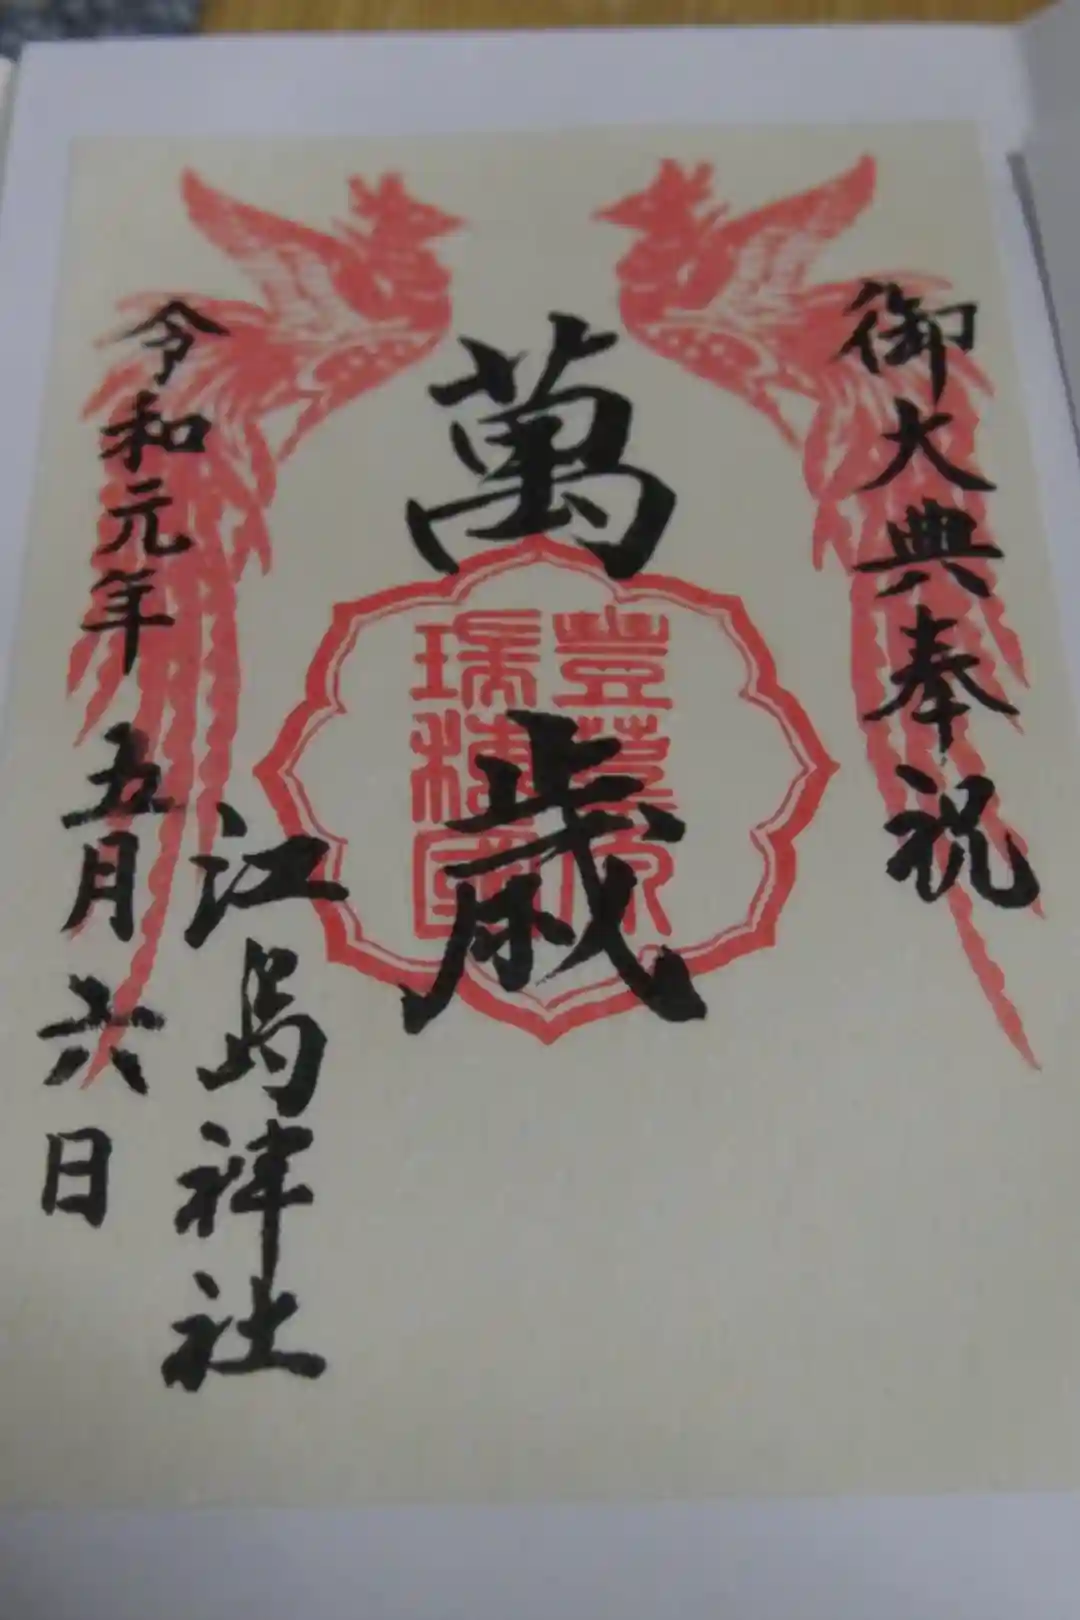 御大典奉祝
萬歳
豊葦原
瑞穂國
江島神社
令和元年五月六日